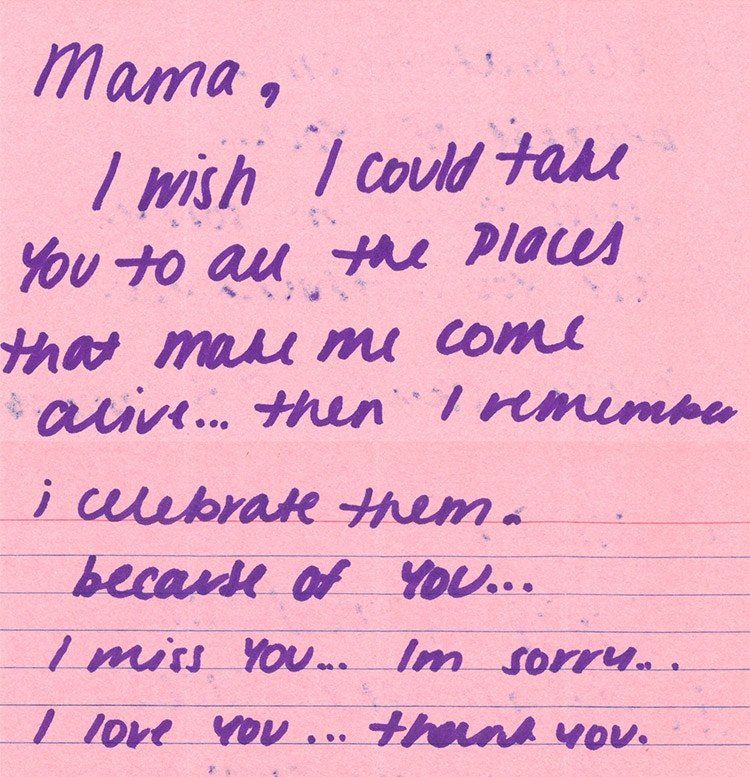 Mama,
I wish I could take
you to all the places
that make me come
alive... then I remember
i celebrate them.
because of you...
I miss you... Im sorry...
I love you... thank you.